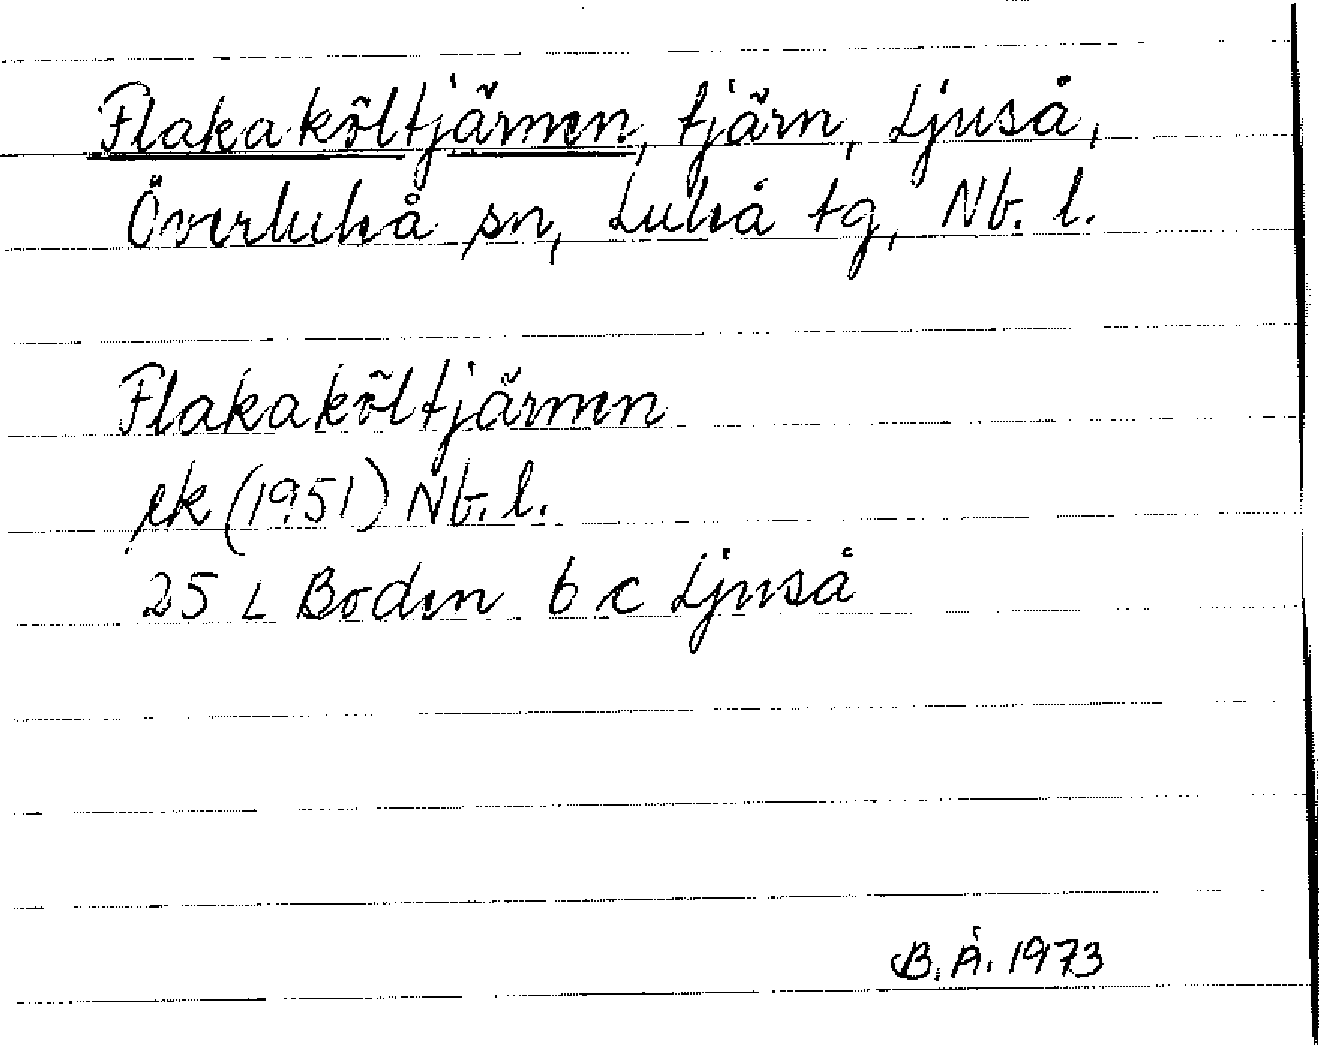 Flakaköltjärnen, tjärn, Ljuså,
Överluleå sn, Luleå tg, Nb. l.
Flakaköltjärnen
ek (1951) Nb. l.
25 L Boden 6 c Ljuså
B. Å. 1973